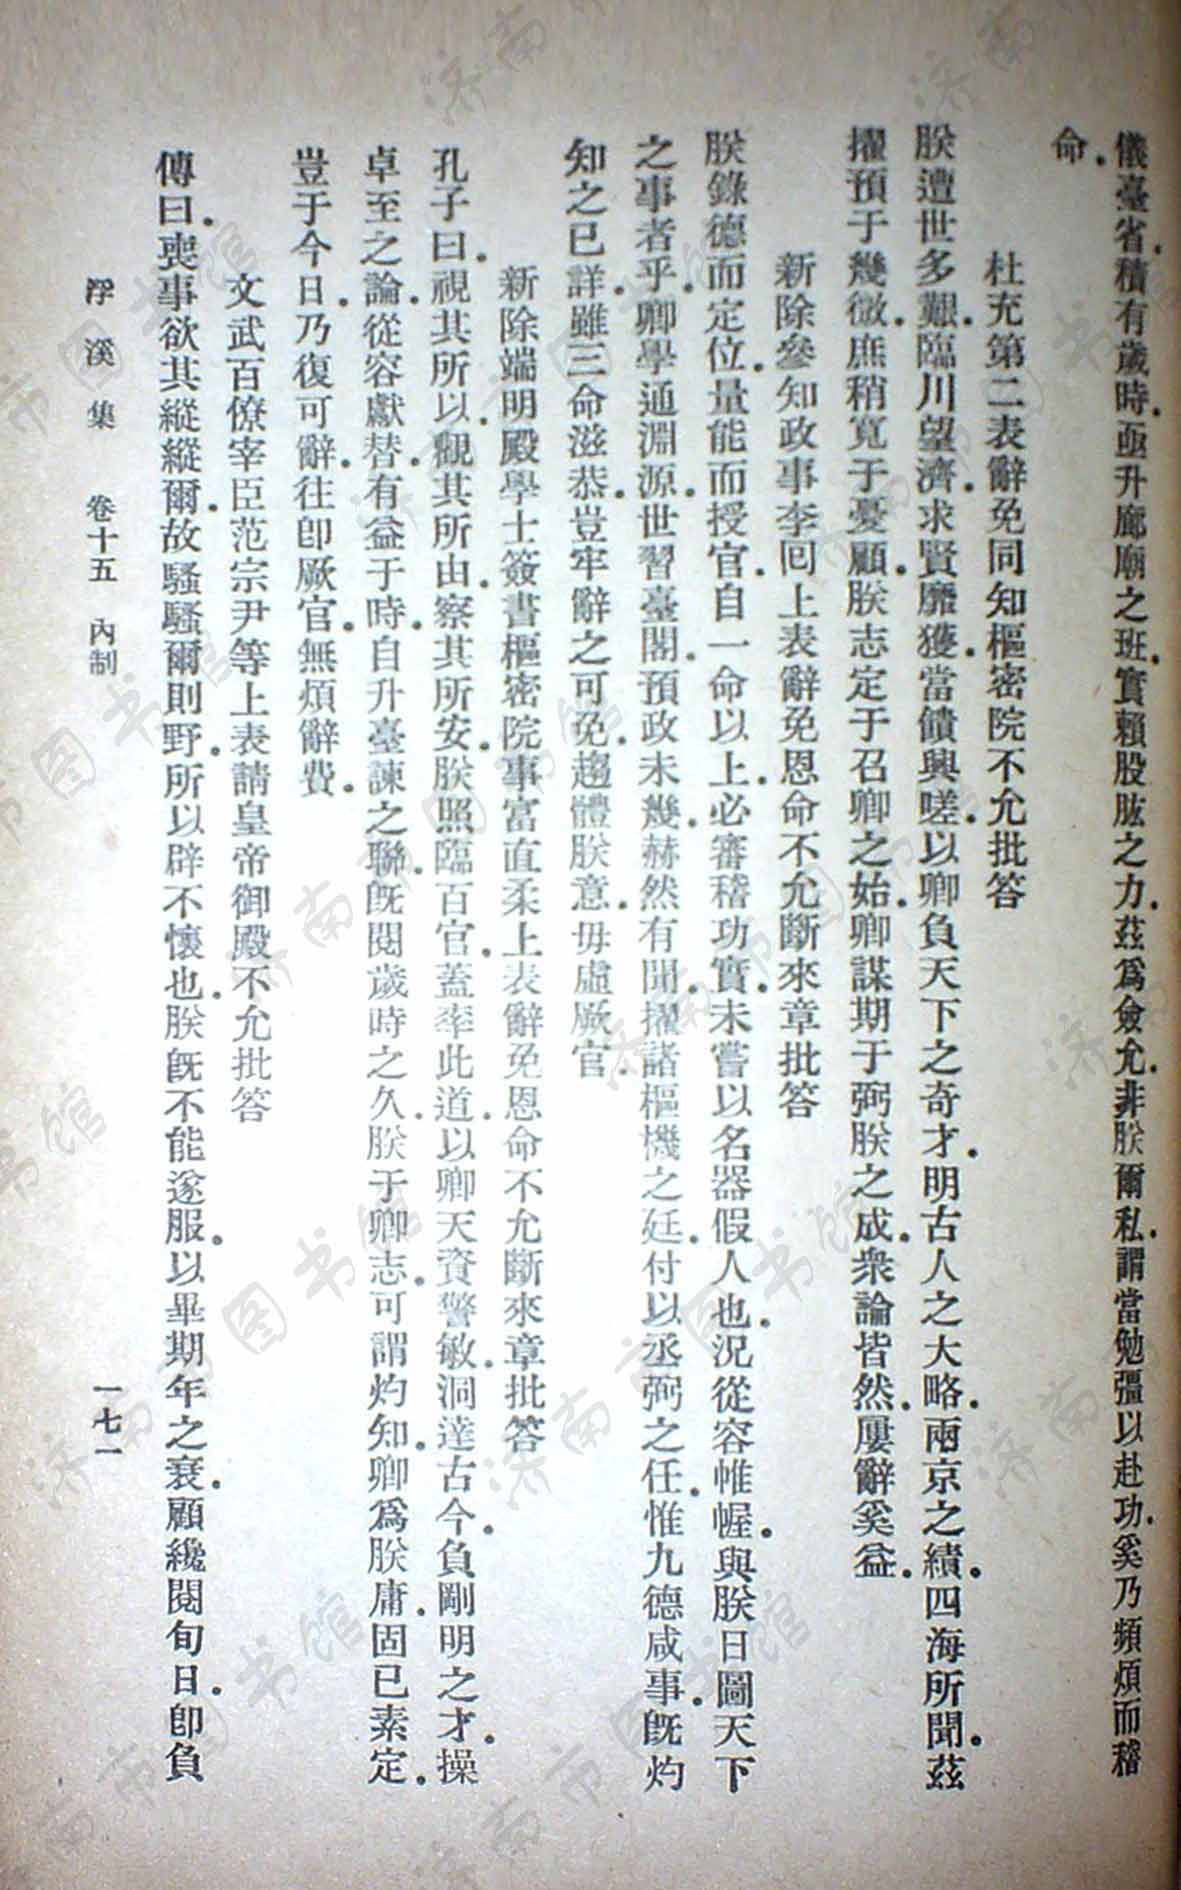 儀臺省。積有歲時。亟升廊廟之班。實賴股肱之力。茲爲僉允。非朕爾私。謂當勉彊以赴功。奚乃頻煩而稽
命。
杜充第二表辭免同知樞密院不允批答
朕遭世多艱。臨川望濟。求賢靡獲。當饋興嗟。以卿負天下之奇才。明古人之大略。兩京之績。四海所聞。茲
擢預于幾微。庶稍寬于憂顧。朕志定于召卿之始。卿謀期于弼朕之成。衆論皆然。屢辭奚益。
新除參知政事李回上表辭免恩命不允斷來章批答
朕錄德而定位。量能而授官。自一命以上。必審稽功實。未嘗以名器假人也。況從容帷幄。與朕日圖天下
之事者乎。卿學通淵源。世習臺閣。預政未幾。赫然有聞。擢諸樞機之廷。付以丞弼之任。惟九德咸事。旣灼
知之已詳。雖三命滋恭。豈牢辭之可免。趨體朕意。毋虛厥官。
新除端明殿學士簽書樞密院事富直柔上表辭免恩命不允斷來章批答
孔子曰。視其所以。觀其所由。察其所安。朕照臨百官。蓋率此道。以卿天資警敏。洞達古今。負剛明之才。操
卓至之論。從容獻替。有益于時。自升臺諫之聯。旣閱歲時之久。朕于卿志。可謂灼知。卿爲朕庸。固已素定。
豈于今日。乃復可辭。往卽厥官。無煩辭費。
文武百僚宰臣范宗尹等上表請皇帝御殿不允批答
傳曰。喪事欲其縱縱爾。故騷騷爾則野。所以辟不懷也。朕旣不能遂服。以畢期年之衰。顧纔閱旬日。卽負
浮溪集 卷十五 內制
一七一
济南市图书馆